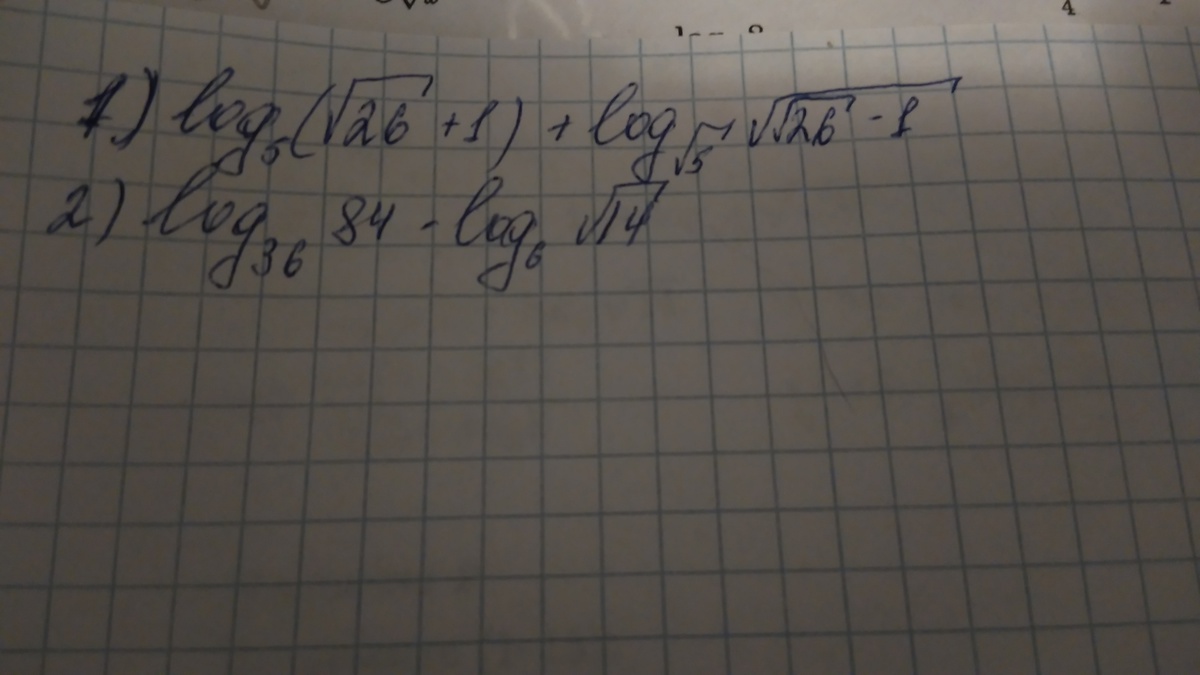 1) log₅(√26 + 1) + log_√5 √(√26 - 1)
2) log₃₆ 84 - log₆ √14